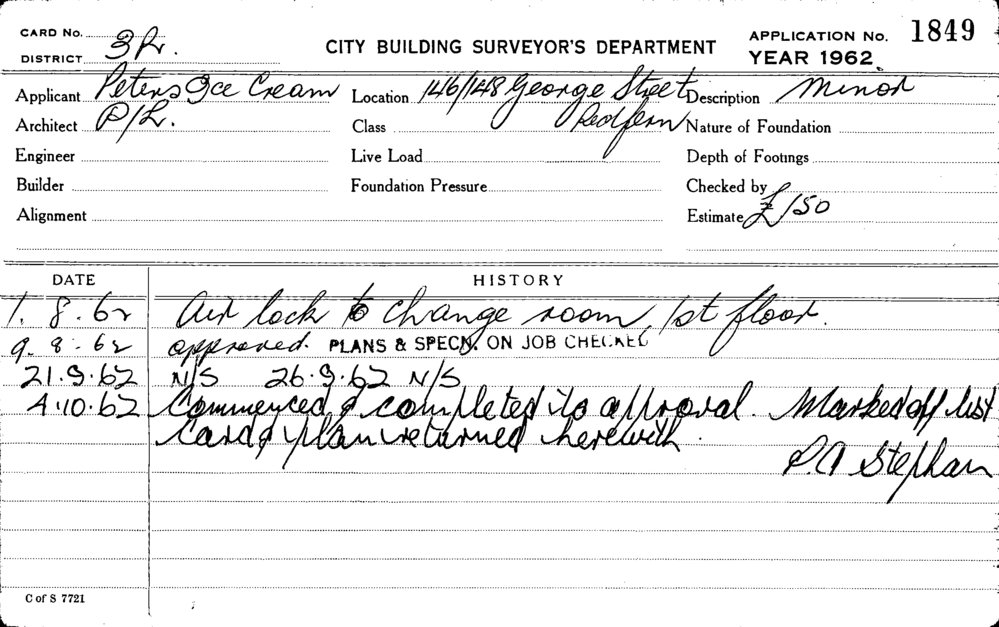 CARD No. APPLICATION No. 1849
DISTRICT 3R. CITY BUILDING SURVEYOR'S DEPARTMENT YEAR 1962.
Applicant Peters Ice Cream Location 146/148 George Street Description Minor
Architect P/L. Class Redfern Nature of Foundation
Engineer Live Load Depth of Footings
Builder Foundation Pressure Checked by
Alignment Estimate £150
DATE HISTORY
1.8.62 Air lock to change room, 1st floor.
9.8.62 approved. PLANS & SPECN. ON JOB CHECKED
21.9.62 N/S 26.9.62 N/S
4.10.62 Commenced & completed to approval. Marked off list
Card & plan returned herewith.
P.A Stephan
C of S 7721